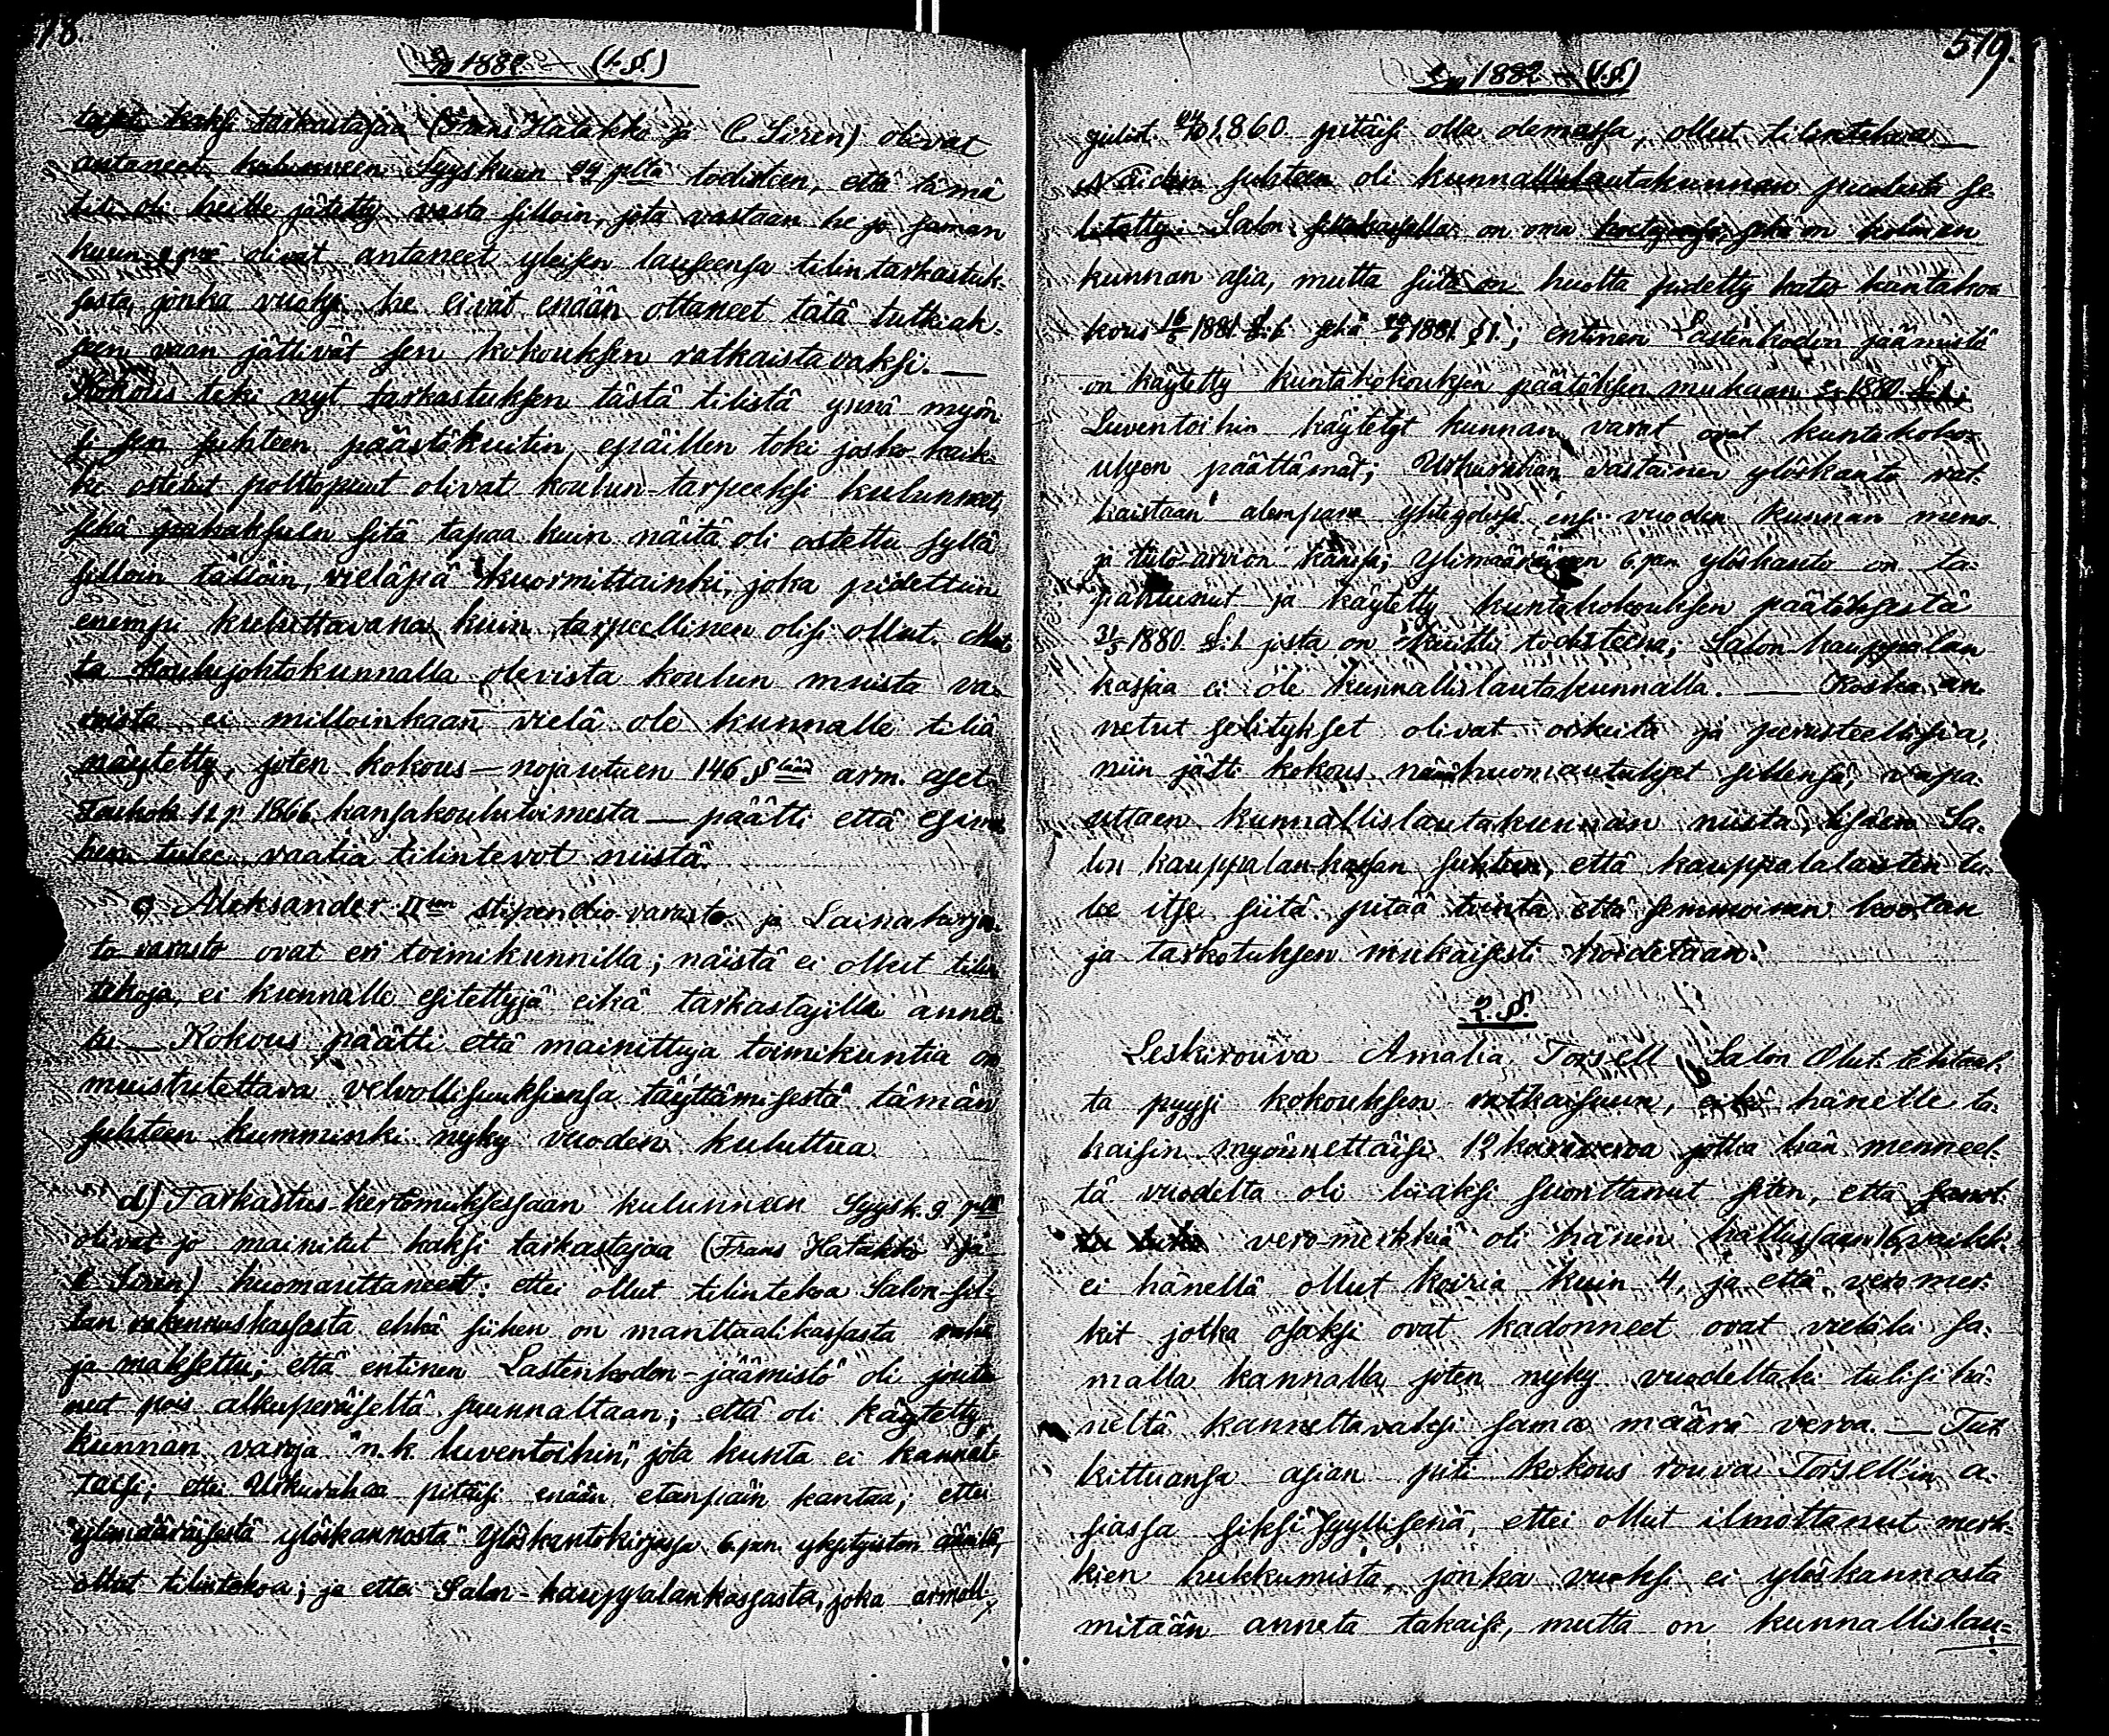 18.
1882 — (1.§.)
kaksi tarkastajaa (Frans Hatakko ja C. Siren) olivat
antaneet kuluneen Syyskuun 29 pltä todisteen, että tämä
tili oli heille jätetty vasta silloin, jota vastaan he jo saman
kuun 9 pnä olivat antaneet yleisen lauseensa tilintarkastuk-
sesta, jonka vuoksi he eivät enään ottaneet tätä tutkiak-
seen vaan jättivät sen kokouksen ratkaistavaksi. —
Kokous teki nyt tarkastuksen tästä tilistä ynnä myön-
si sen suhteen päästökuitin, epäillen toki josko kaik-
ki ostetut polttopuut olivat koulun-tarpeeksi kulunneet,
sekä paheksuen sitä tapaa kuin näitä oli ostettu syltä
silloin tälloin, vieläpiä kuormittainki, joka pidettiin
enempi kuluttavana kuin tarpeellinen olisi ollut. Mut-
ta koulujohtokunnalla olevista koulun muista va-
roista ei milloinkaan vielä ole kunnalle tiliä
näytetty, joten kokous — nojautuen 146 § arm. aset.
Toukok. 11 p. 1866 kansakoulutoimesta — päätti että esimie-
hen tulee vaatia tilintevot niistä.
c) Aleksander II stipendio-varasto ja Lainakirjas-
to varasto ovat eri toimikunnilla; näistä ei ollut tilin-
tekoja, ei kunnalle esitettyjä eikä tarkastajilla annet-
tu. — Kokous päätti että mainittuja toimikuntia on
muistutettava velvollisuuksiensa täyttämisestä tämän
suhteen kumminki nyky vuoden kuluttua.
d) Tarkastus-kertomuksessaan kulunneen Syysk. 9 pltä
olivat jo mainitut kaksi tarkastajaa (Frans Hatakko ja
C Siren) huomauttaneet: ettei ollut tilintekoa Salon-sil-
lan rakennuskassasta ehkä siihen on manttaalikassasta raho-
ja maksettu; että entinen Lastenkodon-jäämistö oli joutu-
nut pois alkuperäiseltä suunnaltaan; että oli käytetty
kunnan varoja "n.k. luventoihin", jota kunta ei kannat-
taisi; ettei Urkurahaa pitäisi enään etanpäin kantaa; ettei
"ylimääräisestä ylöskannosta" ylöskantokirjassa 6. pen. yksityiston ääneltä,
ollut tilintekoa; ja ettei Salon-kauppalankassasta, joka armoll.
519.
1882 — (1.§.)
julist. 1860 pitäisi olla olemassa, ollut tilintekoa. —
Näiden suhteen oli kunnallislautakunnan puolesta se-
litetty: Salon siltakassalla on oma hoitajansa, sekä on kolmen
kunnan asia, mutta siitä on huolta pidetty katso kuntako-
kous 16/6 1881 §.1. sekä 1881 § 1.; entinen Lastenkodon jäämistö
on käytetty kuntakokouksen päätöksen mukaan 1880. §.1.;
Luventoihin käytetyt kunnan varat ovat kuntakoko-
uksen päättämät; Urkurahan vastainen ylöskanto rat-
kaistaan alempana yhteydessä ensi vuoden kunnan meno-
ja tulo-arvion kanssa; Ylimääräinen 6. pen ylöskanto on ta-
pahtunut ja käytetty kuntakokouksen päätöksestä
31/5 1880. §.1. josta on kuitti todisteena; Salon kauppalan
kassaa ei ole kunnallislautakunnalla. — Koska an-
netut selitykset olivat oikeita ja perusteellisia,
niin jätti kokous nämä huomautukset sillensä, vapa-
uttaen kunnallislautakunnan niistä, lisäten Sa-
lon kauppalan-kassan suhteen, että kauppalalaisten tu-
lee itse siitä pitää tointa että semmoinen kootaan
ja tarkotuksen mukaisesti hoidetaan.
2. §.
Leskirouva Amalia Torsell Salon Olut-tehtaal-
ta pyysi kokouksen ratkaisuun, eikö hänelle ta-
kaisin myönnettäisi 12 koiraveroa jotka hän menneel-
tä vuodelta oli liiaksi suorittanut siten, että sanot-
veromerkkiä oli hänen hallussaan 16, vaikk-
ei hänellä ollut koiria kuin 4, ja että veromer-
kit jotka osaksi ovat kadonneet ovat vieläki sa-
malla kannalla joten nyky vuodeltaki tulisi hä-
neltä kannettavaksi sama määrä veroa. — Tut-
kittuansa asian piti kokous rouva Torsell'in a-
siassa siksi syyllisenä, ettei ollut ilmottanut merk-
kien hukkumista, jonka vuoksi ei ylöskannosta
mitään anneta takaisi, mutta on kunnallislau-